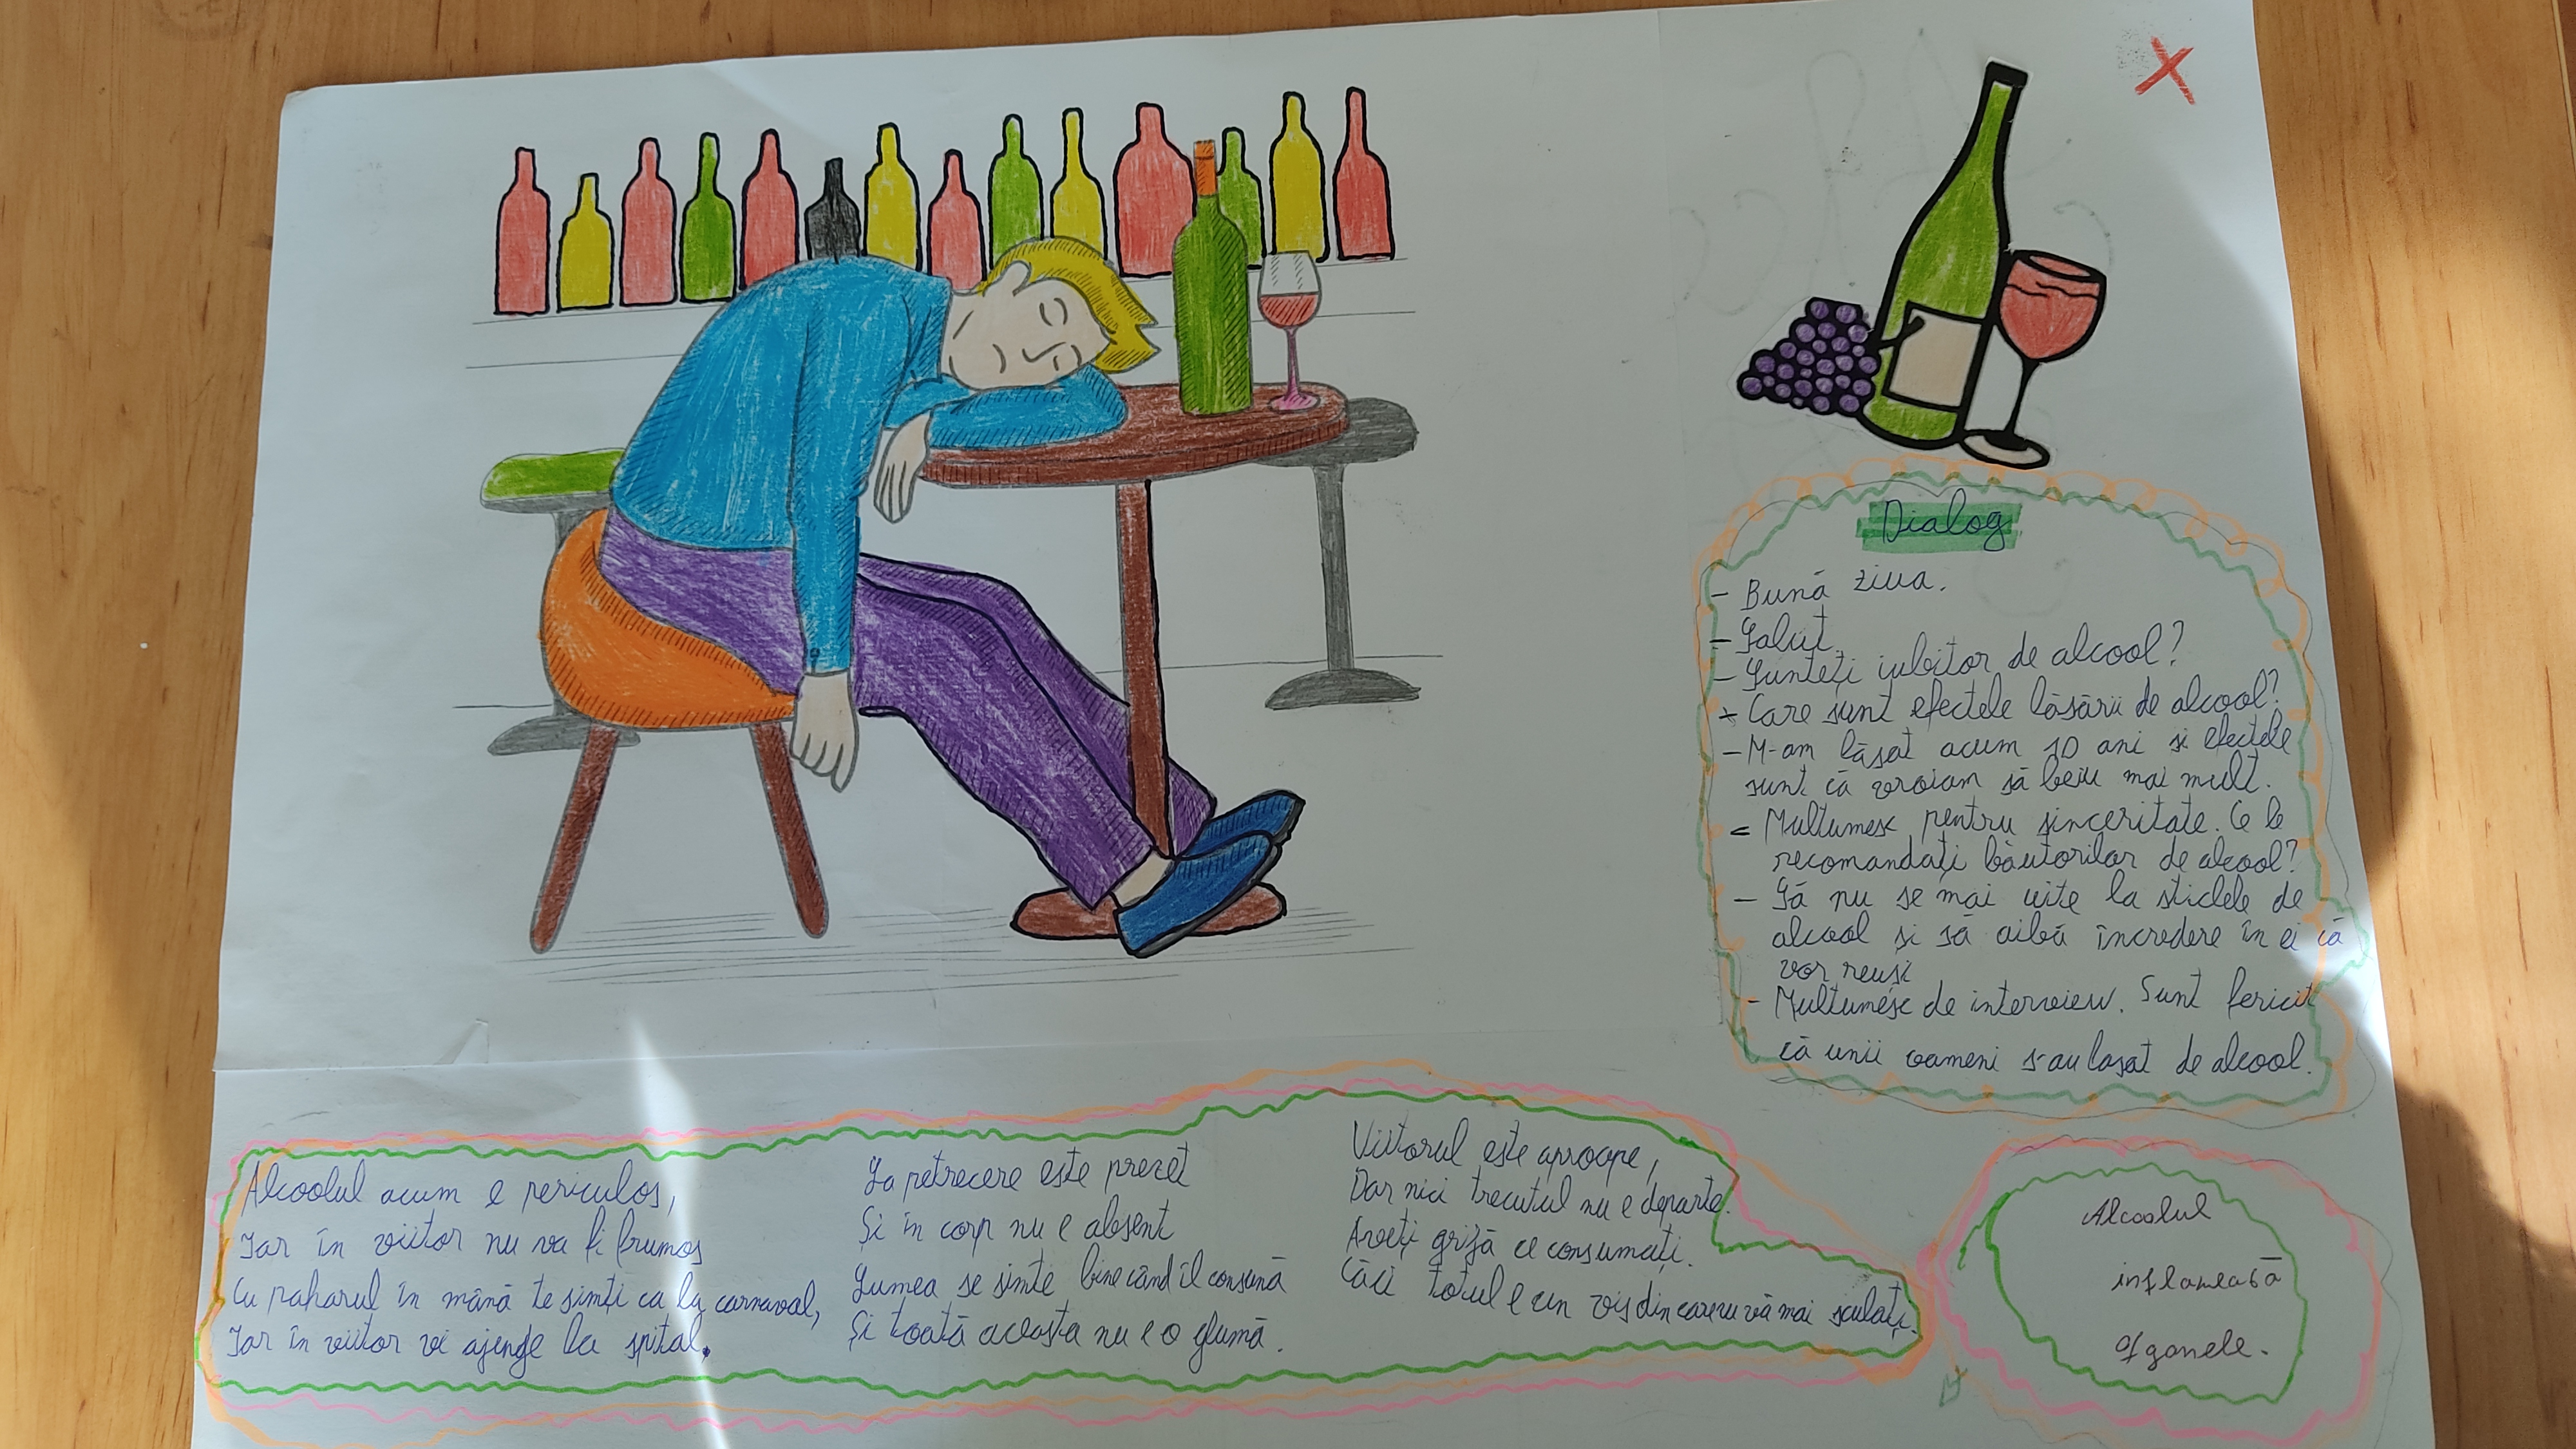 Dialog
- Bună ziua.
- Salut.
- Sunteți iubitor de alcool?
- Care sunt efectele lăsării de alcool?
- M-am lăsat acum 10 ani și efectele
sunt că vroiam să beiu mai mult.
- Multumesc pentru sinceritate. Ce le
recomandați băutorilor de alcool?
- Să nu se mai uite la sticlele de
alcool și să aibă încredere în ei că
vor reuși
- Multumesc de interview. Sunt fericit
că unii oameni s-au lasat de alcool.
Alcoolul acum e periculos,
Iar în viitor nu va fi frumos
Cu paharul în mână te simți ca la carnaval,
Iar în viitor vei ajunge la spital.
La petrecere este prezet
Și în corp nu e absent
Lumea se simte bine când îl consumă
Și toată aceasta nu e o glumă.
Viitorul este aproape,
Dar nici trecutul nu e departe.
Aveți grijă ce consumați.
Căci totul e un vis din care nu vă mai sculați.
Alcoolul
inflamează
organele.